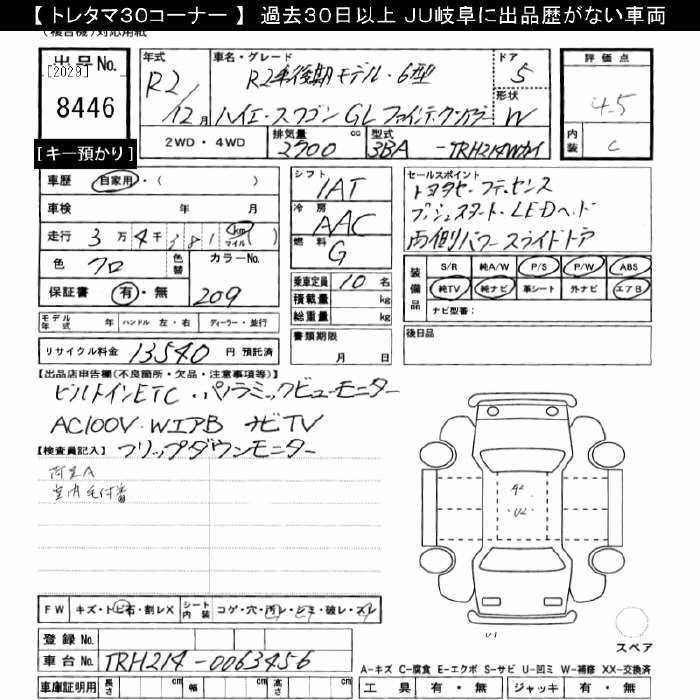 【トレタマ30コーナー】 過去30日以上 JU岐阜に出品歴がない車両
出品No. [2029] 8446 [キー預かり]
年式 R2/12月
車名・グレード R2年後期モデル・6型
ハイエースワゴン GL ファインテックツアラー
ドア 5
形状 W
評価点 4.5
内装 C
2WD・4WD 排気量 2700 cc 型式 3BA-TRH214W
車歴 自家用・( )
車検 年 月
走行 3万4千381 km マイル ( )
色 クロ 色替 カラーNo. 209
保証書 有・無
シフト IAT
冷房 AAC
燃料 G
乗車定員 10 名
積載量 kg
総重量 kg
書類期限 月 日
セールスポイント
トヨタセーフティセンス
プッシュスタート・LEDヘッド
両側パワースライドドア
装備品 S/R 純A/W P/S P/W ABS
純TV 純ナビ 革シート 外ナビ エアB
ナビ型番:
モデル年式 年 ハンドル 左・右 ディーラー・並行
リサイクル料金 13540 円 預託済
後日品
【出品店申告欄(不良箇所・欠品・注意事項等)】
ビルトインETC・パノラミックビューモニター
AC100V・WエアB ナビTV
【検査員記入】 フリップダウンモニター
室内
A2
U2
U1
FW キズ・トビ石・割レX シート内装 コゲ・穴・汚レ・シミ・破レ・スレ
登録No.
車台No. TRH214-0063456
スペア
A-キズ C-腐食 E-エクボ S-サビ U-凹ミ W-補修 XX-交換済
車庫証明用 長さ cm 幅 cm 高さ cm 工具 有・無 ジャッキ 有・無